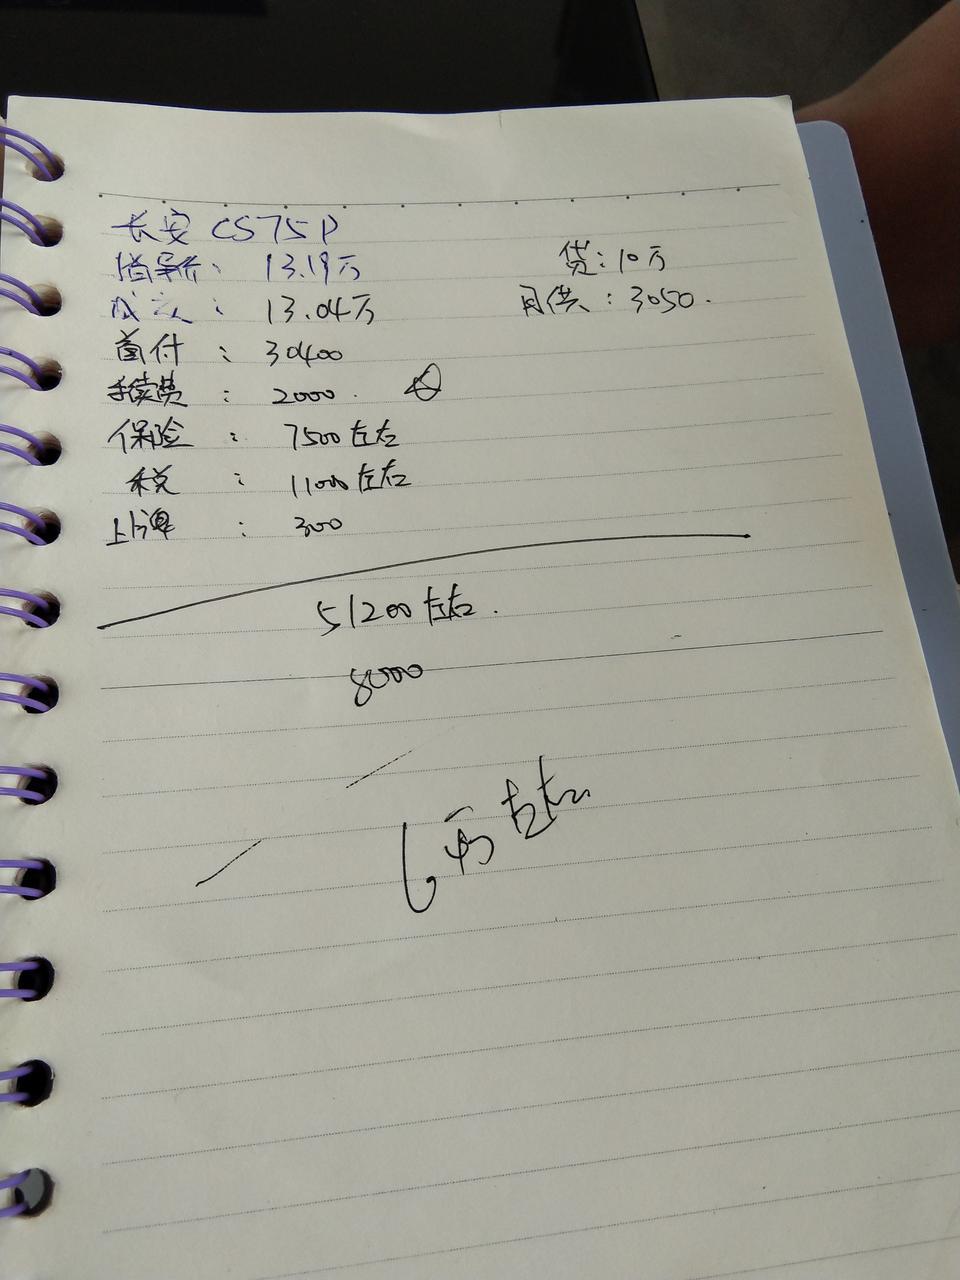 长安 CS75P
指导价: 13.19万
贷: 10万
成交: 13.04万
月供: 3050.
首付: 30400
手续费: 2000.
保险: 7500左右
税: 11000左右
上牌: 300
51200左右.
8000
6万左右